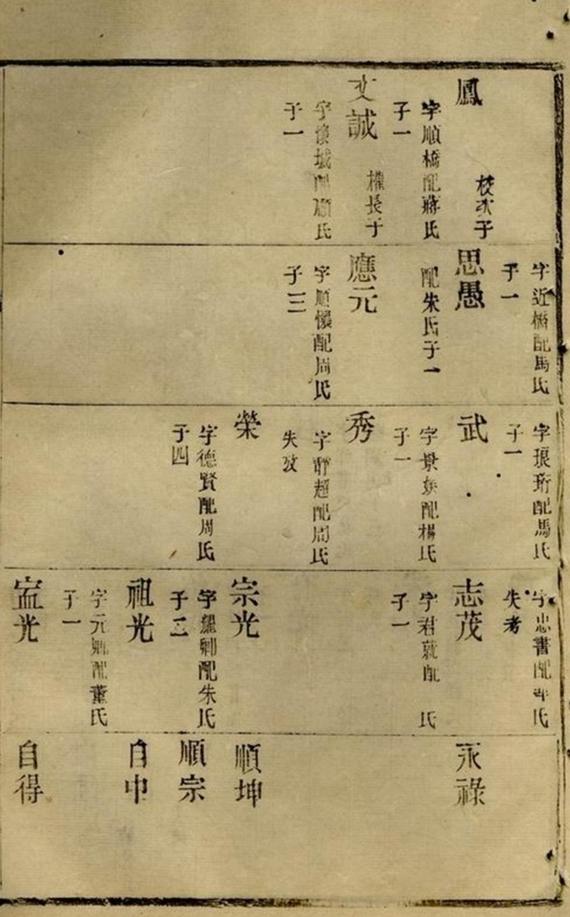 鳳
枝次子
字順橋配蔣氏
子一
文誠
權長子
字懷城配顧氏
子一
字近橋配馬氏
子一
思愚
配朱氏子一
應元
字順懷配周氏
子三
字琅珩配馬氏
子一
武
字景炎配楊氏
子一
秀
字靜超配周氏
失攷
榮
字德賢配周氏
子四
字忠書配 氏
失考
志茂
字君就配 氏
子一
宗光
字耀卿配朱氏
子二
祖光
字元卿配董氏
子一
宣光
永祿
順坤
順宗
自中
自得